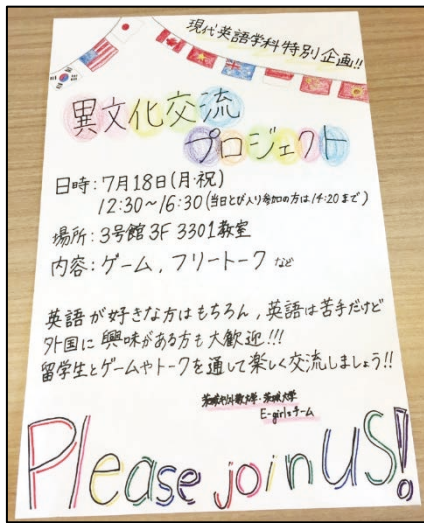 現代英語学科特別企画!!
異文化交流
プロジェクト
日時:7月18日(月・祝)
12:30~16:30(当日とび入り参加の方は14:20まで)
場所:3号館3F 3301教室
内容:ゲーム,フリートーク など
英語が好きな方はもちろん,英語は苦手だけど
外国に興味がある方も大歓迎!!!
留学生とゲームやトークを通して楽しく交流しましょう!!
茨城キリスト教大学・茨城大学
E-girlsチーム
Please join US!